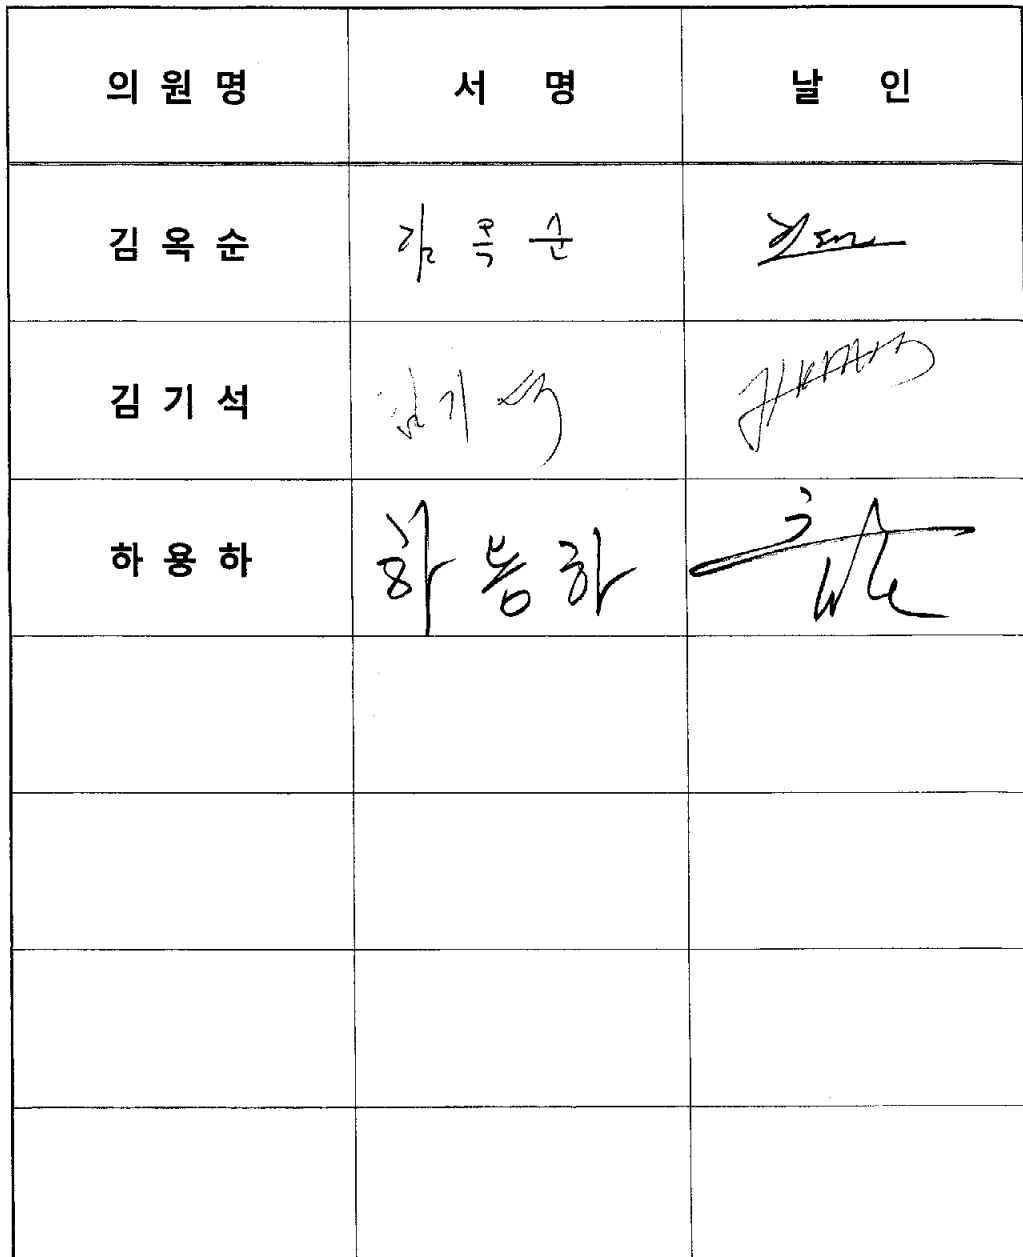 의원명 서명 날인
김옥순 김옥순
김기석 김기석
하용하 하용하